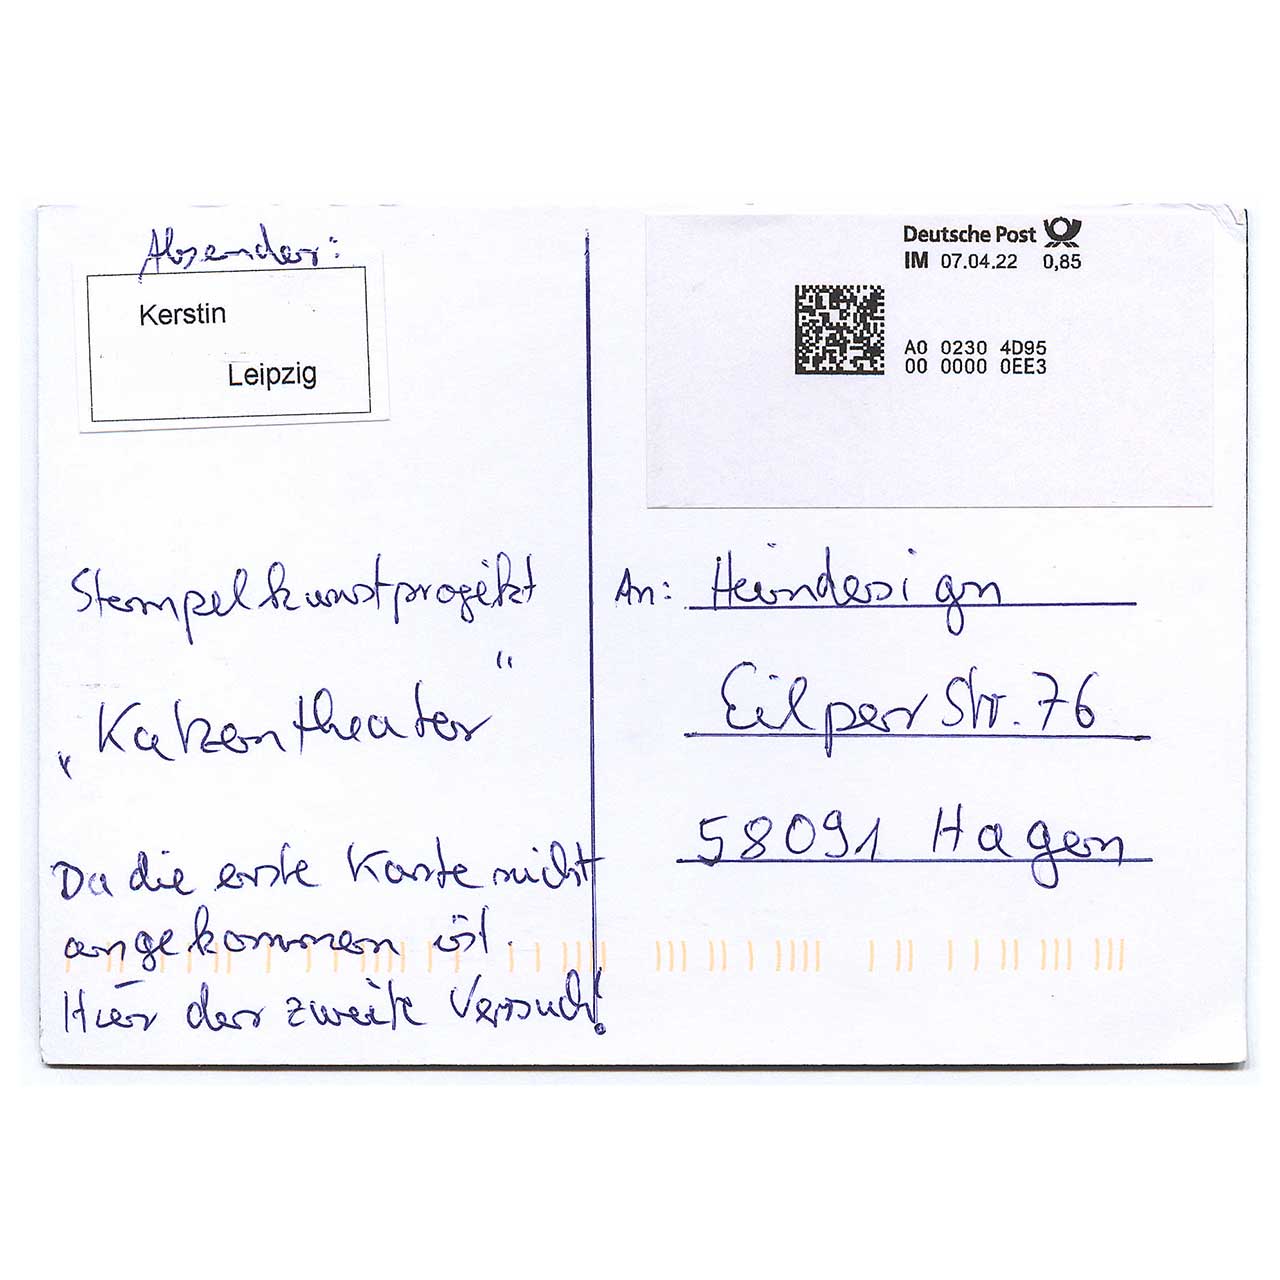 Absender:
Kerstin
Leipzig
Stempelkunstprojekt
„Katzentheater“
Da die erste Karte nicht
angekommen ist.
Hier der zweite Versuch!
Deutsche Post
IM 07.04.22 0,85
A0 0230 4D95
00 0000 0EE3
An: Heindesign
Eilper Str. 76
58091 Hagen